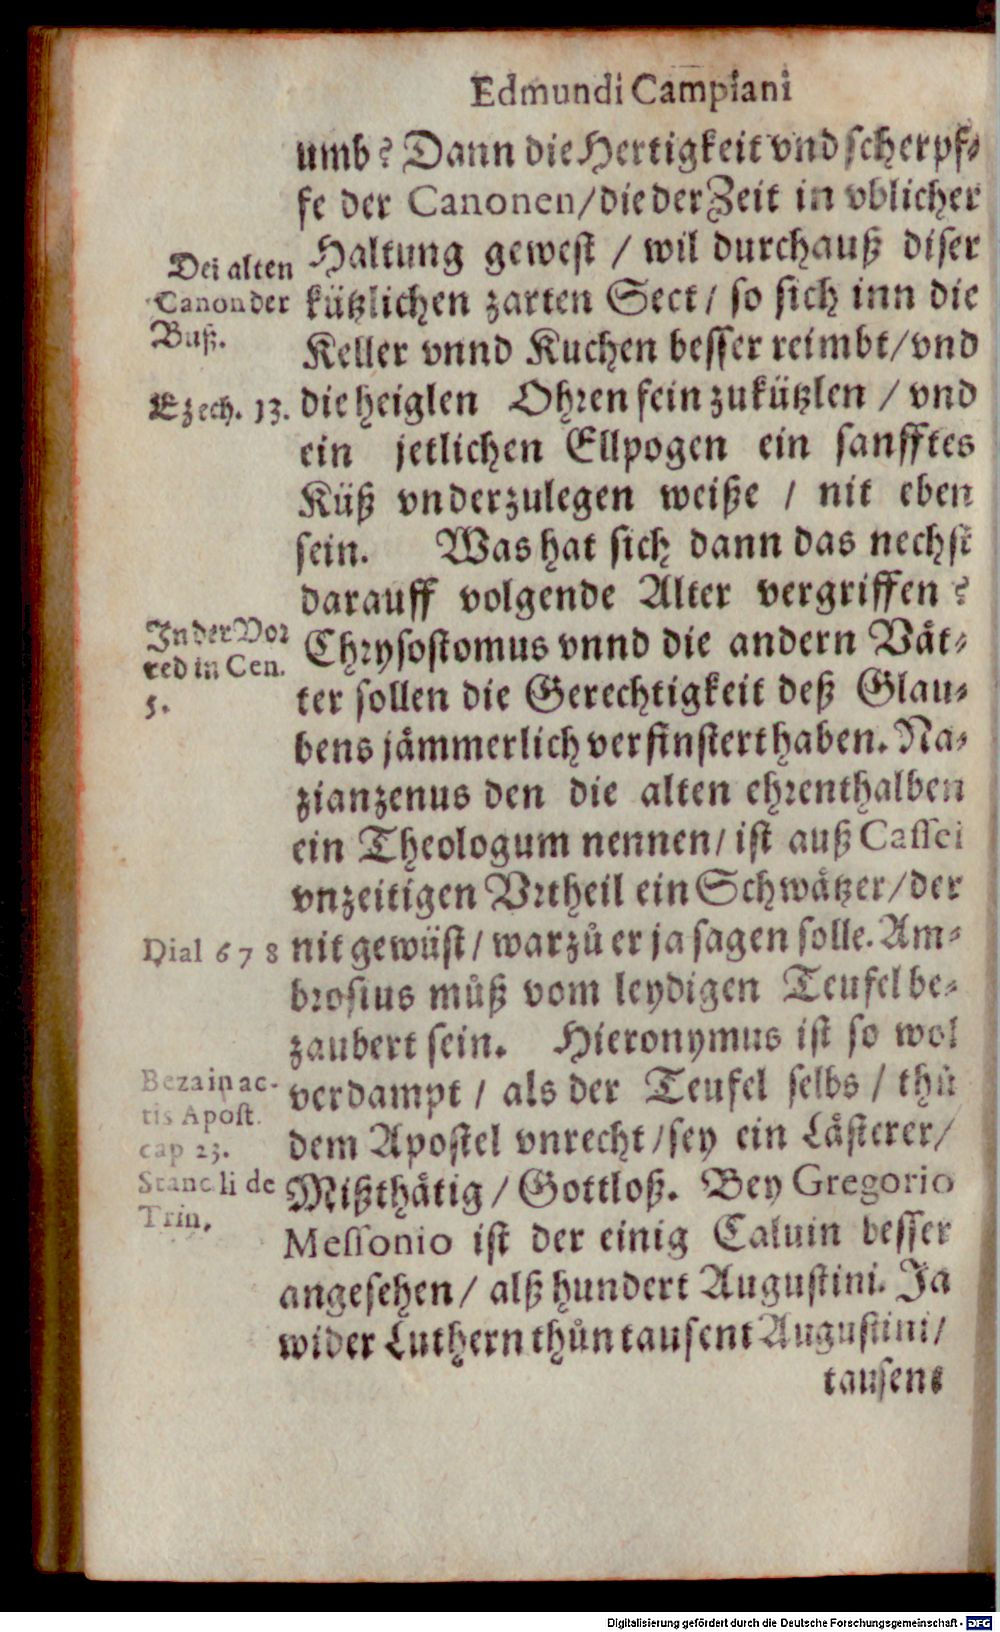 Edmundi Campiani
umb? Dann die Hertigkeit vnd scherpf-
fe der Canonen/die der Zeit in vblicher
Haltung gewest / wil durchauß diser
kützlichen zarten Sect/ so sich inn die
Keller vnnd Kuchen besser reimbt/vnd
die heiglen Ohren fein zukützlen / vnd
ein jetlichen Ellpogen ein sanfftes
Küß vnderzulegen weiße / nit eben
sein. Was hat sich dann das nechst
darauff volgende Alter vergriffen?
Chrysostomus vnnd die andern Våt-
ter sollen die Gerechtigkeit deß Glau-
bens jåmmerlich verfinstert haben. Na-
zianzenus den die alten ehrenthalben
ein Theologum nennen/ ist auß Cassei
vnzeitigen Vrtheil ein Schwåtzer/der
nit gewüst/ warzů er ja sagen solle. Am-
brosius můß vom leydigen Teufel be-
zaubert sein. Hieronymus ist so wol
verdampt / als der Teufel selbs / thů
dem Apostel vnrecht/sey ein Låsterer/
Mißthåtig / Gottloß. Bey Gregorio
Messonio ist der einig Caluin besser
angesehen/ alß hundert Augustini. Ja
wider Luthern thůn tausent Augustini/
tausent
Dei alten
Canon der
Buß.
Ezech. 13.
In der Vor
red in Cen.
5.
Dial 6 7 8
Beza in ac-
tis Apost.
cap 23.
Stanc. li de
Trin.
Digitalisierung gefördert durch die Deutsche Forschungsgemeinschaft - DFG